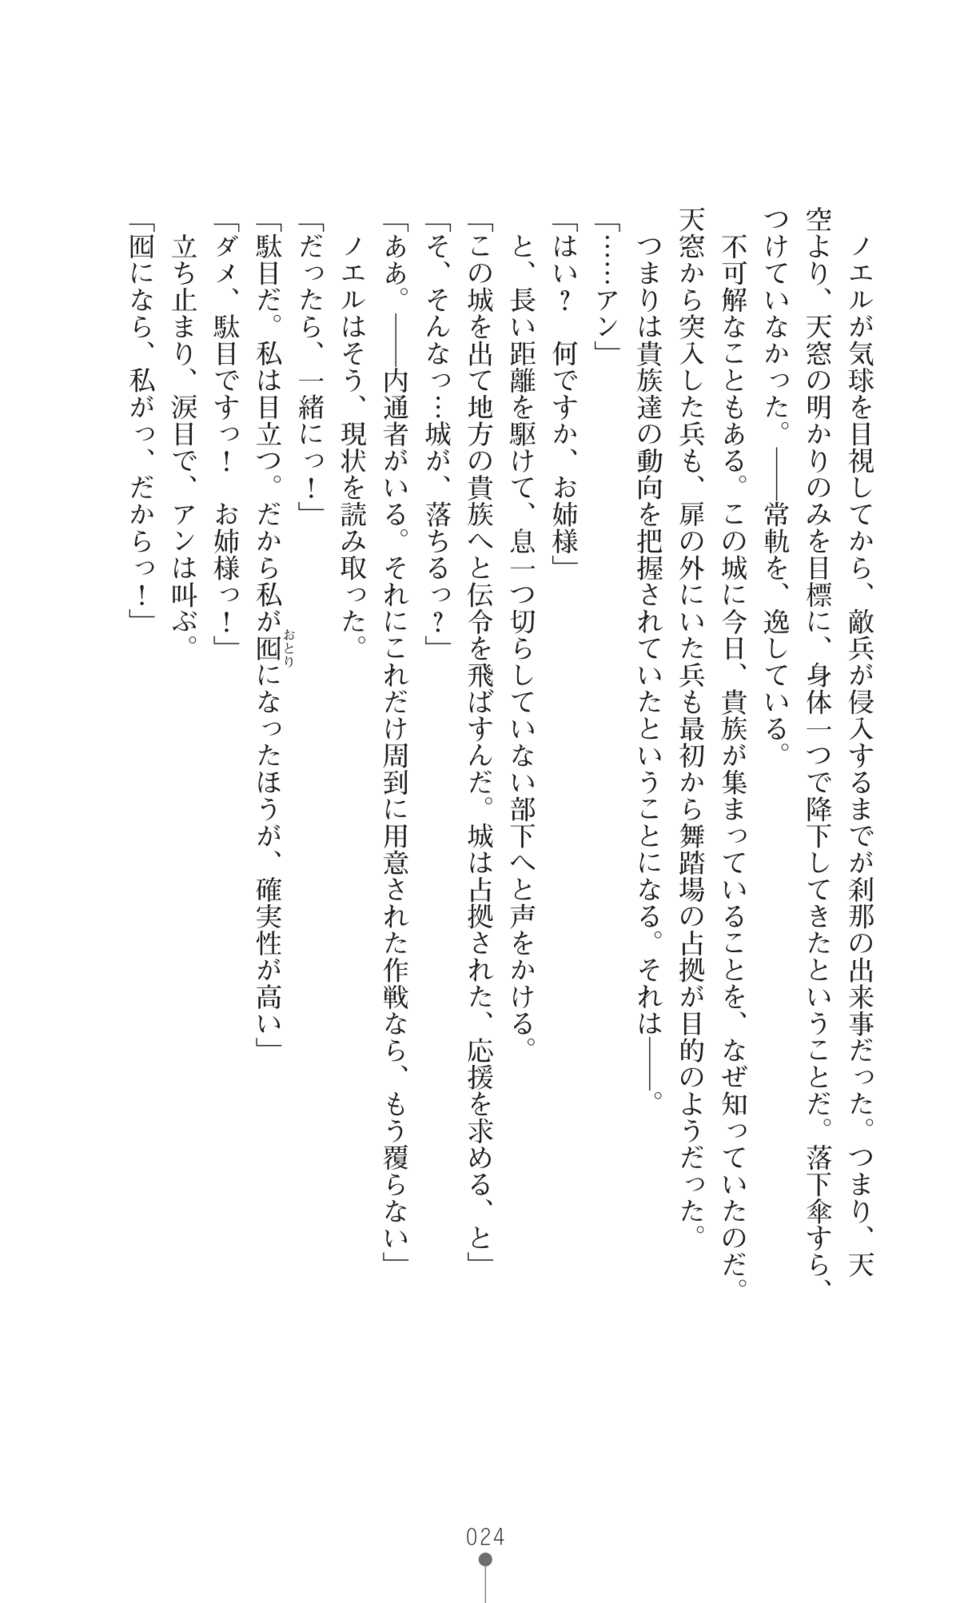 ノエルが気球を目視してから、敵兵が侵入するまでが刹那の出来事だった。つまり、天
空より、天窓の明かりのみを目標に、身体一つで降下してきたということだ。落下傘すら、
つけていなかった。――常軌を、逸している。
不可解なこともある。この城に今日、貴族が集まっていることを、なぜ知っていたのだ。
天窓から突入した兵も、扉の外にいた兵も最初から舞踏場の占拠が目的のようだった。
つまりは貴族達の動向を把握されていたということになる。それは――。
「……アン」
「はい？　何ですか、お姉様」
と、長い距離を駆けて、息一つ切らしていない部下へと声をかける。
「この城を出て地方の貴族へと伝令を飛ばすんだ。城は占拠された、応援を求める、と」
「そ、そんなっ…城が、落ちるっ？」
「ああ。――内通者がいる。それにこれだけ周到に用意された作戦なら、もう覆らない」
ノエルはそう、現状を読み取った。
「だったら、一緒にっ！」
「駄目だ。私は目立つ。だから私が囮おとりになったほうが、確実性が高い」
「ダメ、駄目ですっ！　お姉様っ！」
立ち止まり、涙目で、アンは叫ぶ。
「囮になら、私がっ、だからっ！」
024